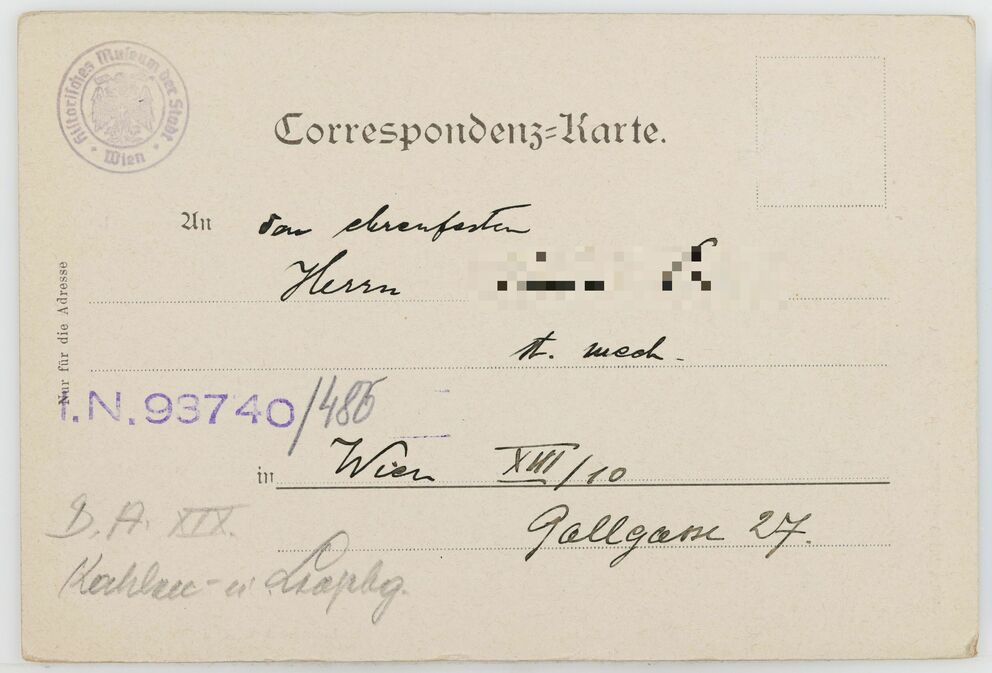 Historisches Museum der Stadt
Wien
Correspondenz-Karte.
An den ehrenfesten
Herrn
st. mech.
Nur für die Adresse
I.N. 93740/486
in Wien XIII/10
Gallgasse 27.
B. A. XIX.
Kahlen- u. Leopbg.